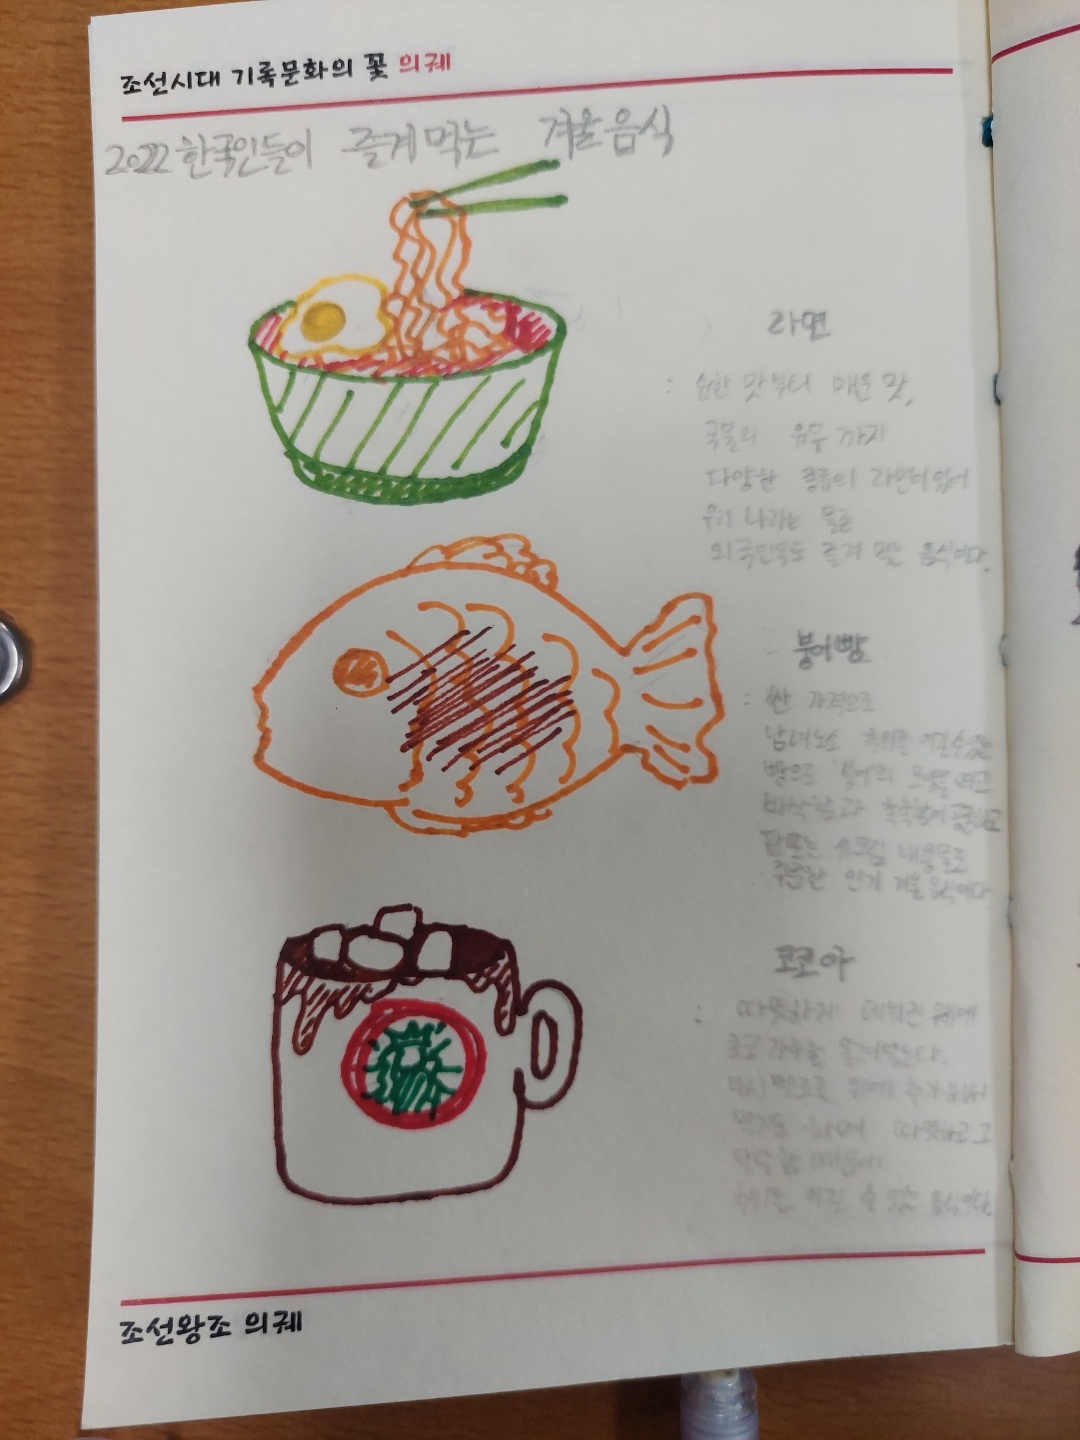 조선시대 기록문화의 꽃 의궤
2022 한국인들이 즐겨먹는 겨울음식
라면
: 순한 맛부터 매운 맛,
국물의 유무까지
다양한 종류의 라면이 있어
우리 나라는 물론
외국인들도 즐겨 먹는 음식이다.
- 붕어빵
: 싼 가격으로
남녀노소 추위를 이길수있는
빵으로 '붕어'의 모양을
바삭함과 촉촉함이
팥 또는 슈크림 내용물로
인기 겨울 음식이다
코코아
: 따뜻하게 데워진 우유에
코코 가루를
마시멜로를 위에 추가해서
먹기도 하며 따뜻하고 그
때문에
추위를 이길 수 있는 음식이다.
조선왕조 의궤